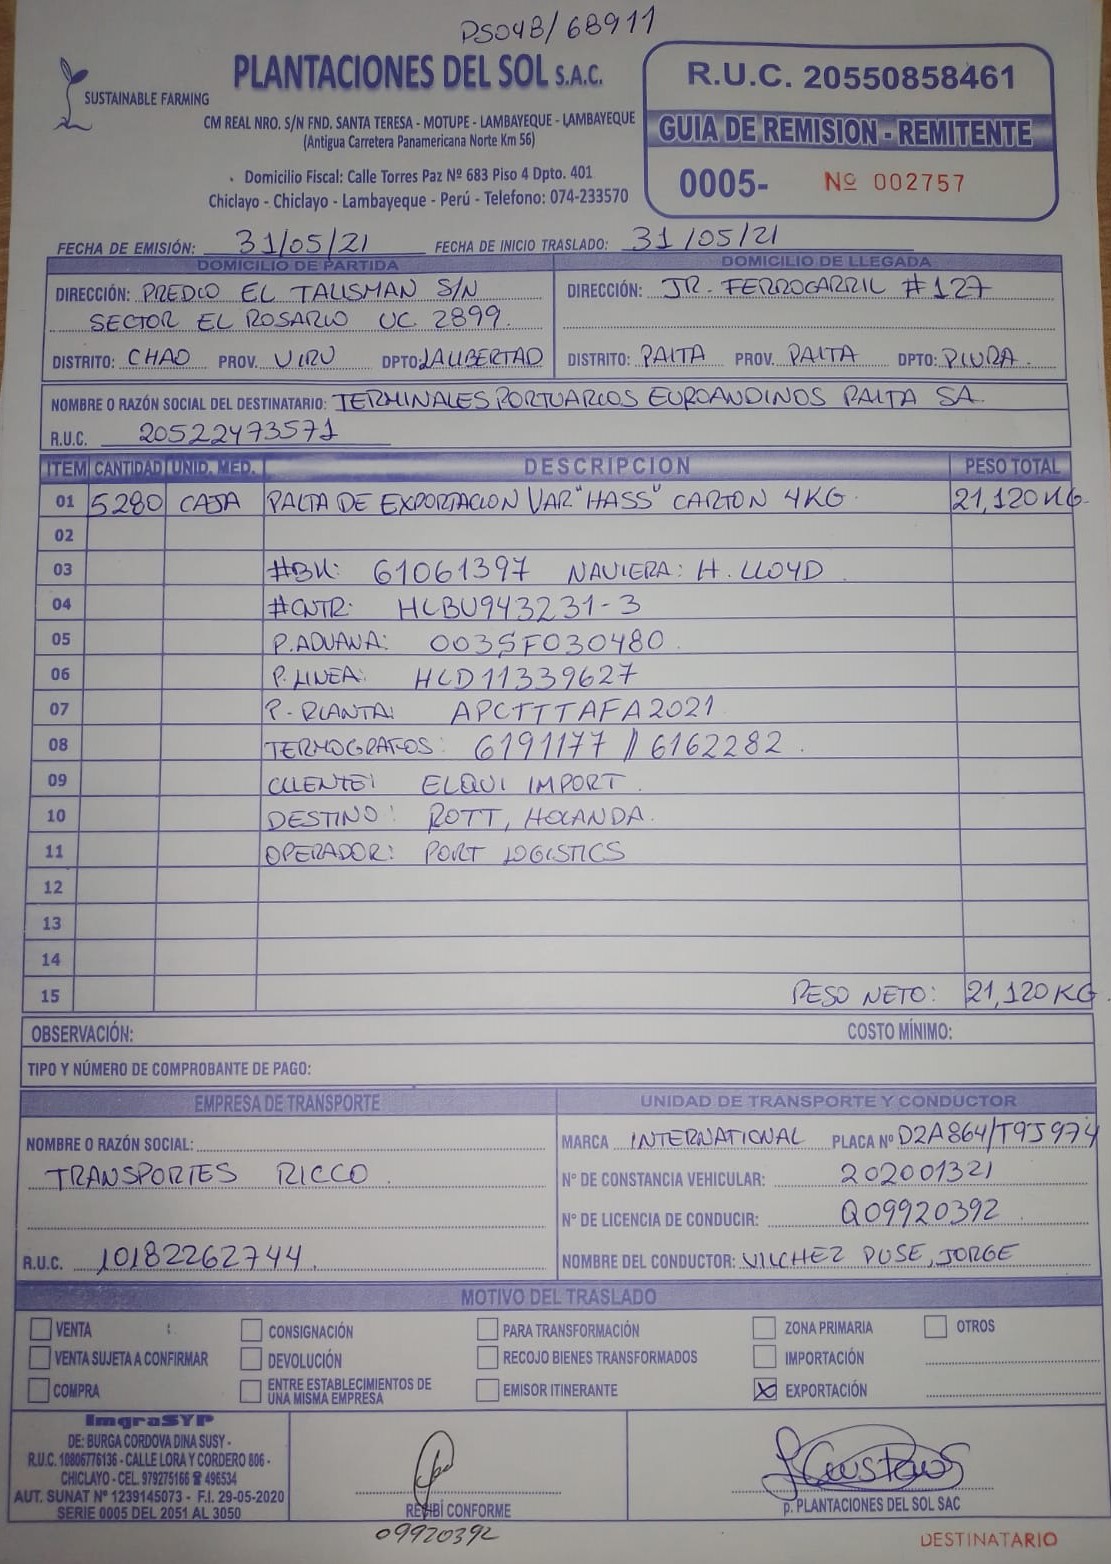 PS048/68911
SUSTAINABLE FARMING
PLANTACIONES DEL SOL S.A.C.
CM REAL NRO. S/N FND. SANTA TERESA - MOTUPE - LAMBAYEQUE - LAMBAYEQUE
(Antigua Carretera Panamericana Norte Km 56)
Domicilio Fiscal: Calle Torres Paz Nº 683 Piso 4 Dpto. 401
Chiclayo - Chiclayo - Lambayeque - Perú - Telefono: 074-233570
R.U.C. 20550858461
GUIA DE REMISION - REMITENTE
0005- Nº 002757
FECHA DE EMISIÓN: 31/05/21 FECHA DE INICIO TRASLADO: 31/05/21
DOMICILIO DE PARTIDA DOMICILIO DE LLEGADA
DIRECCIÓN: PREDIO EL TALISMAN S/N DIRECCIÓN: JR. FERROCARRIL #127
SECTOR EL ROSARIO UC 2899.
DISTRITO: CHAO PROV. VIRU DPTO: LA LIBERTAD DISTRITO: PAITA PROV. PAITA DPTO: PIURA.
NOMBRE O RAZÓN SOCIAL DEL DESTINATARIO: TERMINALES PORTUARIOS EUROANDINOS PAITA SA.
R.U.C. 20522473571
ITEM CANTIDAD UNID. MED. DESCRIPCION PESO TOTAL
01 5280 CAJA PALTA DE EXPORTACION VAR "HASS" CARTON 4KG. 21,120KG.
02
03 #BK: 61061397 NAVIERA: H. LLOYD
04 #CNTR: HLBU943231-3
05 P.ADUANA: 003SF030480.
06 P.LINEA: HLD11339627
07 P-PLANTA: APCTTTAFA2021
08 TERMOGRAFOS: 6191177 // 6162282.
09 CLIENTE: ELQUI IMPORT.
10 DESTINO: ROTT, HOLANDA.
11 OPERADOR: PORT LOGISTICS
12
13
14
15 PESO NETO: 21,120KG.
OBSERVACIÓN: COSTO MÍNIMO:
TIPO Y NÚMERO DE COMPROBANTE DE PAGO:
EMPRESA DE TRANSPORTE UNIDAD DE TRANSPORTE Y CONDUCTOR
NOMBRE O RAZÓN SOCIAL: MARCA INTERNATIONAL PLACA Nº D2A864/T9J974
TRANSPORTES RICCO. Nº DE CONSTANCIA VEHICULAR: 202001321
Nº DE LICENCIA DE CONDUCIR: Q09920392
R.U.C. 10182262744. NOMBRE DEL CONDUCTOR: VILCHEZ PUSE, JORGE
MOTIVO DEL TRASLADO
VENTA CONSIGNACIÓN PARA TRANSFORMACIÓN ZONA PRIMARIA OTROS
VENTA SUJETA A CONFIRMAR DEVOLUCIÓN RECOJO BIENES TRANSFORMADOS IMPORTACIÓN
COMPRA ENTRE ESTABLECIMIENTOS DE UNA MISMA EMPRESA EMISOR ITINERANTE X EXPORTACIÓN
ImgraSYP
DE: BURGA CORDOVA DINA SUSY -
R.U.C. 10806776136 - CALLE LORA Y CORDERO 806 -
CHICLAYO - CEL. 979275166 ☎ 496534
AUT. SUNAT Nº 1239145073 - F.I. 29-05-2020
SERIE 0005 DEL 2051 AL 3050
RECIBÍ CONFORME
09920392
p. PLANTACIONES DEL SOL SAC
DESTINATARIO